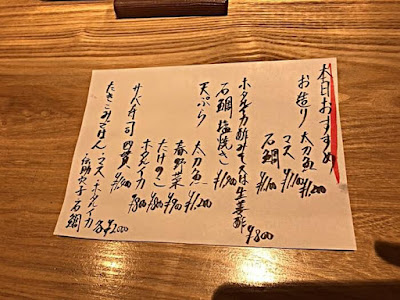 本日おすすめ
お造り 太刀魚 ¥1,100
マス ¥1,100
石鯛 ¥1,100
ホタルイカ酢みそ又は生姜酢 ¥800
石鯛塩焼き ¥1,900
天ぷら 太刀魚 ¥1,200
春野菜 ¥900
たけのこ ¥800
ホタルイカ ¥800
サバ寿司 四貫
たきこみごはん マス ホタルイカ 各¥2,000
石鯛